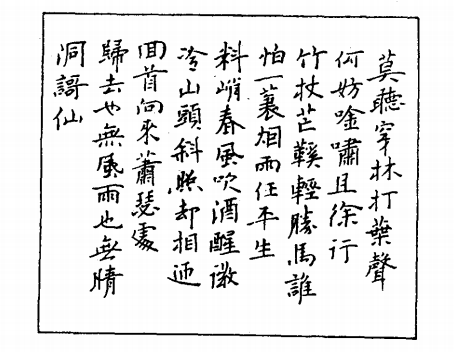 莫聽穿林打葉聲
何妨唫嘯且徐行
竹杖芒鞵輕勝馬誰
怕一蓑烟雨任平生
料峭春風吹酒醒微
冷山頭斜照却相迎
囬首向來蕭瑟處
歸去也無風雨也無晴
洞謌仙